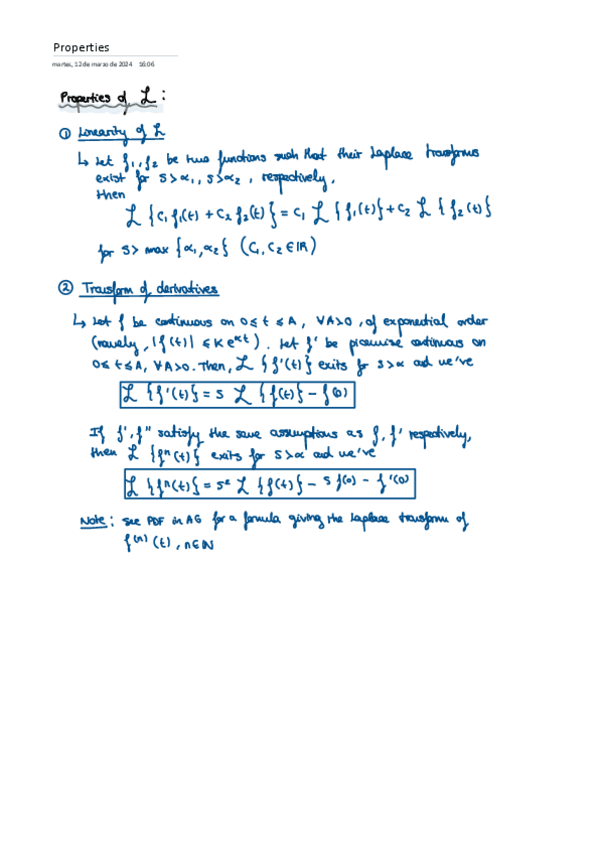 Properties
martes, 12 de marzo de 2024 16:06
Properties of ℒ :
① Linearity of ℒ
↳ Let f₁, f₂ be two functions such that their Laplace transforms
exist for s>α₁, s>α₂, respectively,
then
ℒ {c₁ f₁(t) + c₂ f₂(t)} = c₁ ℒ {f₁(t)} + c₂ ℒ {f₂(t)}
for s> max {α₁, α₂} (c₁, c₂ ∈ ℝ)
② Transform of derivatives
↳ Let f be continuous on 0≤t≤A, ∀A>0, of exponential order
(namely, |f(t)| ≤ K e^{αt}). Let f' be piecewise continuous on
0≤t≤A, ∀A>0. Then, ℒ {f'(t)} exits for s>α and we've
ℒ {f'(t)} = s ℒ {f(t)} - f(0)
If f', f'' satisfy the same assumptions as f, f' respectively,
then ℒ {f''(t)} exits for s>α and we've
ℒ {f''(t)} = s² ℒ {f(t)} - s f(0) - f'(0)
Note: see PDF in AG for a formula giving the Laplace transform of
f⁽ⁿ⁾(t), n∈ℕ